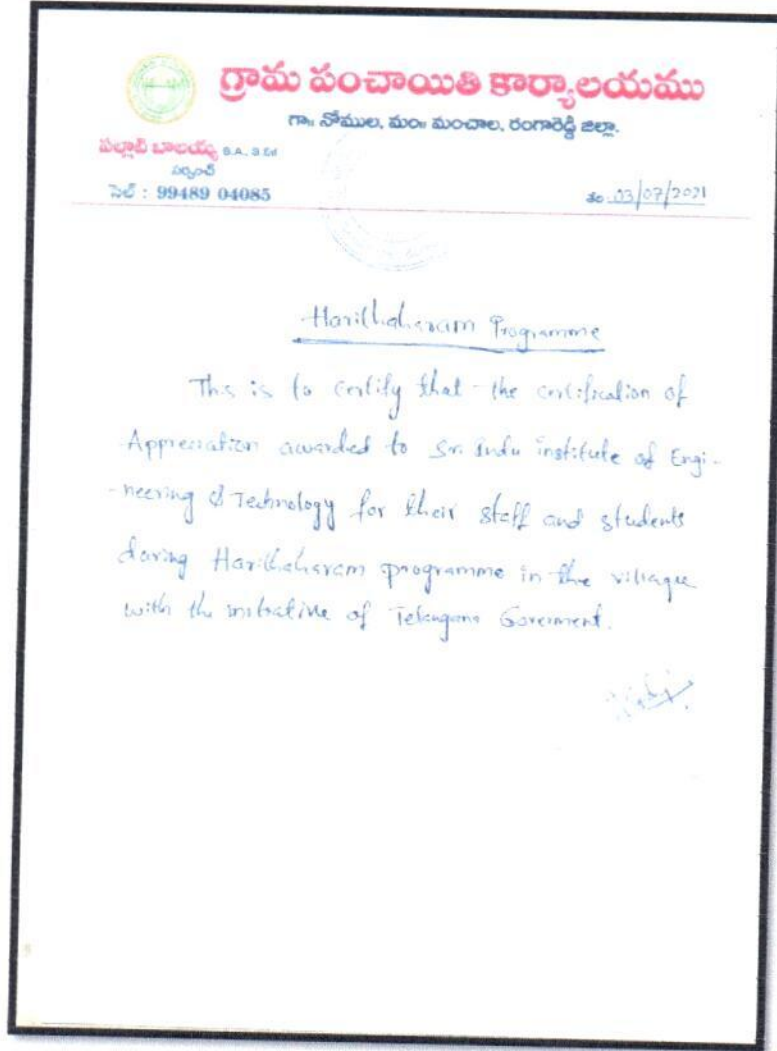 గ్రామ పంచాయితి కార్యాలయము
గ్రా॥ నోముల, మం॥ మంచాల, రంగారెడ్డి జిల్లా.
పల్లాటి బాలయ్య B.A., B.Ed
సర్పంచ్
సెల్ : 99489 04085
తేది 03/07/2021
Harithaharam Programme
This is to certify that the certification of
Appreciation awarded to Sri Indu institute of Engi-
-neering & Technology for their staff and students
during Harithaharam programme in the village
with the initiative of Telangana Goverment.